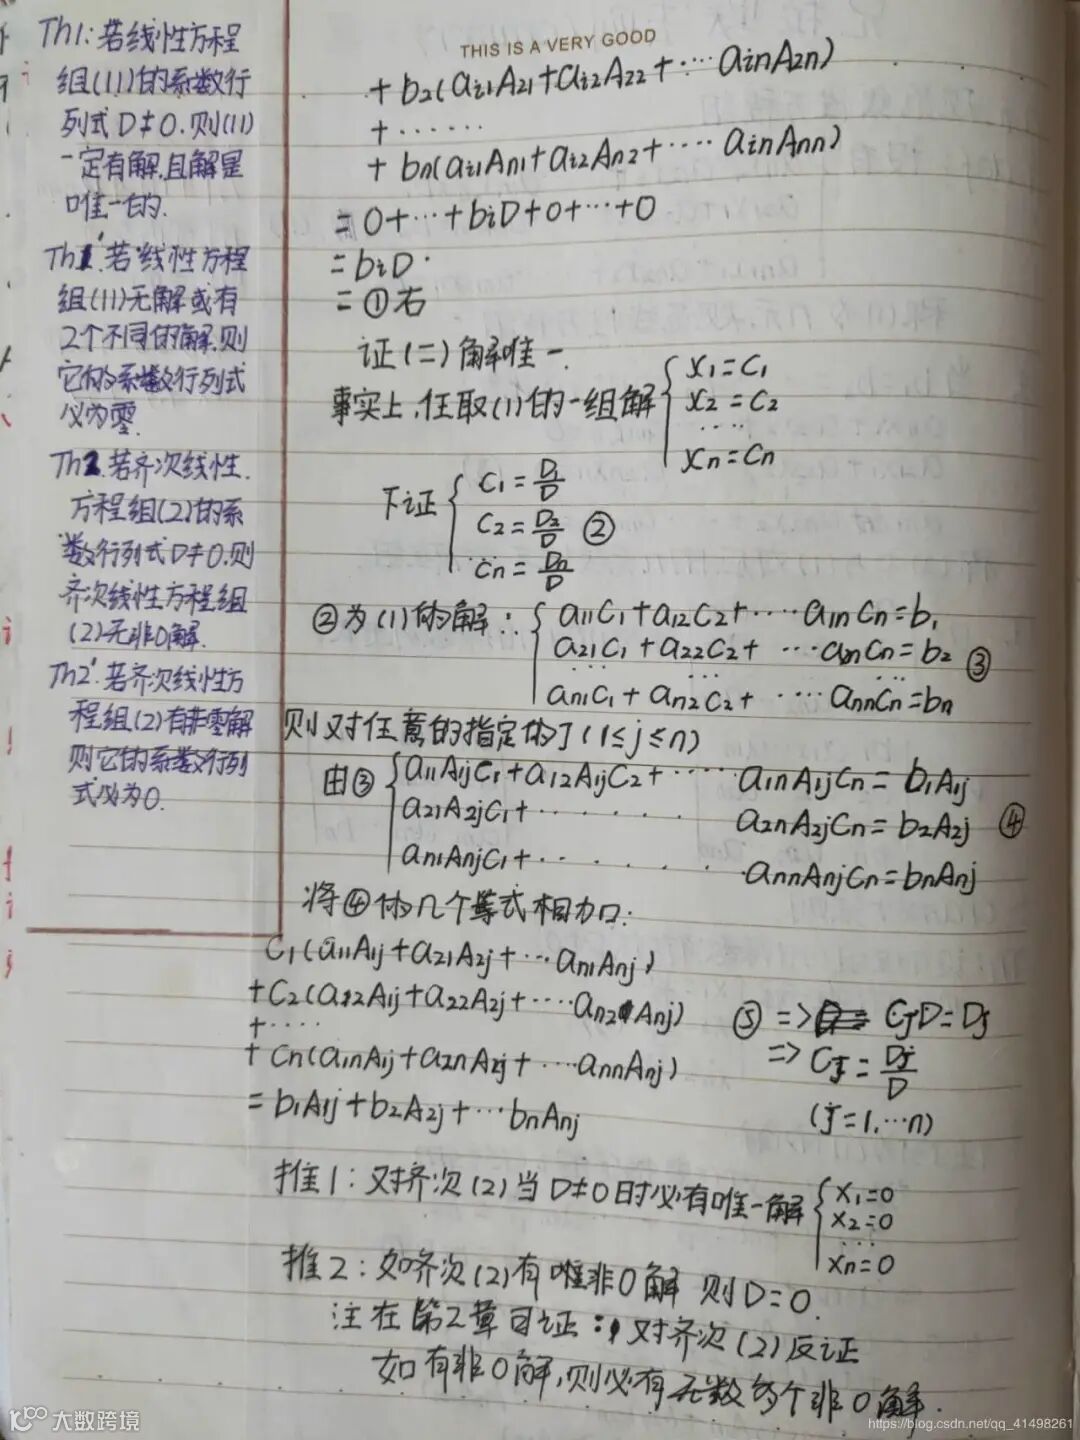 Th1: 若线性方程
组(11)的系数行
列式D≠0.则(11)
一定有解.且解是
唯一的.
Th1'.若线性方程
组(11)无解或有
2个不同的解.则
它的系数行列式
必为零.
Th2.若齐次线性.
方程组(2)的系
数行列式D≠0.则
齐次线性方程组
(2)无非0解.
Th2'.若齐次线性方
程组(2)有非零解
则它的系数行列
式必为0.
THIS IS A VERY GOOD
+ b₂(aᵢ₁A₂₁+aᵢ₂A₂₂+····aᵢₙA₂ₙ)
+ ······
+ bₙ(aᵢ₁Aₙ₁+aᵢ₂Aₙ₂+····aᵢₙAₙₙ)
= 0+···+bᵢD+0+···+0
= bᵢD.
= ①右
证(二)解唯一.
事实上,任取(1)的一组解 { x₁=C₁
x₂=C₂
····
xₙ=Cₙ
下证 { C₁=D₁/D
C₂=D₂/D ②
Cₙ=Dₙ/D
②为(1)的解: { a₁₁C₁+a₁₂C₂+····a₁ₙCₙ=b₁
a₂₁C₁+a₂₂C₂+ ···a₂ₙCₙ=b₂ ③
···
aₙ₁C₁+aₙ₂C₂+ ····aₙₙCₙ=bₙ
则对任意的指定的j(1≤j≤n)
由③ { a₁₁A₁ⱼC₁+a₁₂A₁ⱼC₂+····· a₁ₙA₁ⱼCₙ=b₁A₁ⱼ
a₂₁A₂ⱼC₁+······· a₂ₙA₂ⱼCₙ=b₂A₂ⱼ ④
aₙ₁AₙⱼC₁+······· aₙₙAₙⱼCₙ=bₙAₙⱼ
将④的几个等式相加:
C₁(a₁₁A₁ⱼ+a₂₁A₂ⱼ+···aₙ₁Aₙⱼ)
+C₂(a₁₂A₁ⱼ+a₂₂A₂ⱼ+····aₙ₂Aₙⱼ)
+····
+Cₙ(a₁ₙA₁ⱼ+a₂ₙA₂ⱼ+···aₙₙAₙⱼ)
=b₁A₁ⱼ+b₂A₂ⱼ+···bₙAₙⱼ
⑤ => CⱼD=Dⱼ
=> Cⱼ=Dⱼ/D
(j=1.···n)
推1: 对齐次(2)当D≠0时必有唯一解 { x₁=0
x₂=0
···
xₙ=0
推2: 如齐次(2)有唯非0解 则D=0.
注在第2章可证: 对齐次(2)反证
如有非0解,则必有无数多个非0解.
大数跨境
https://blog.csdn.net/qq_41498261